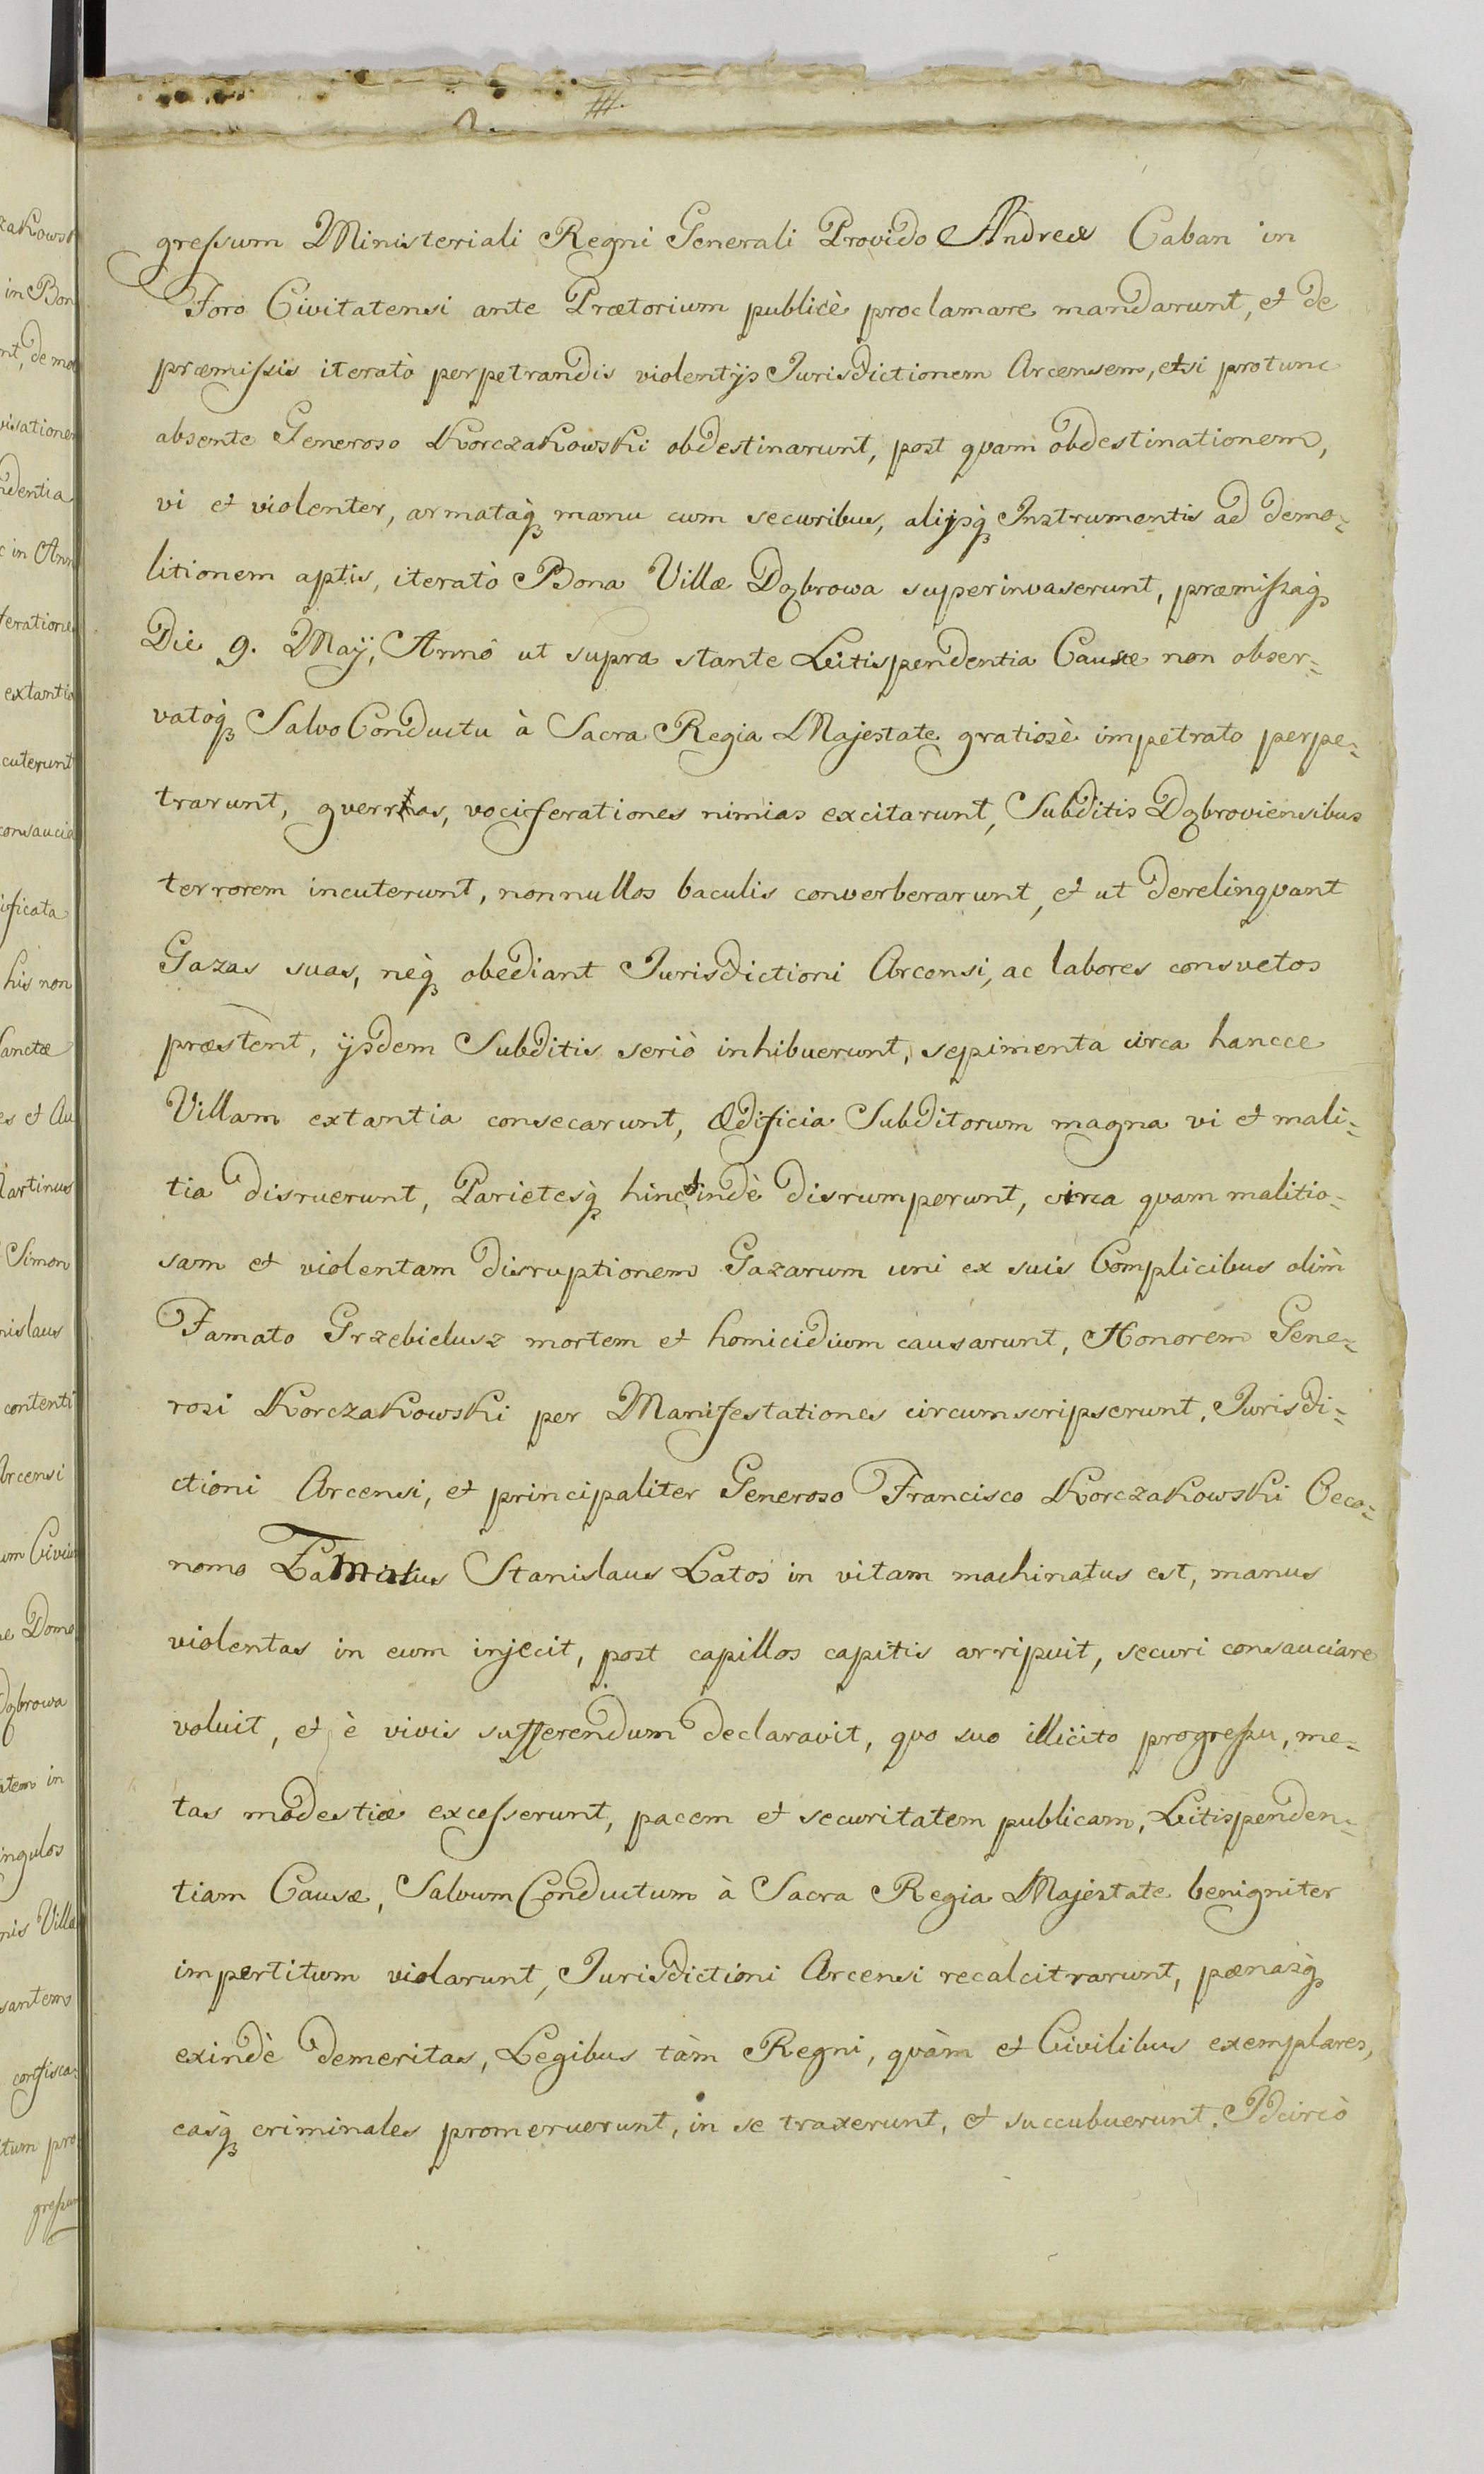 gressum Ministeriali Regni Generali Provido Andreæ Caban in
Foro Civitatensi ante Prætorium publicè proclamare mandarunt, et de
præmissis iteratò perpetrandis violentijs Jurisdictionem Arcensem, etsi protunc
absente Generoso Korczakowski obdestinarunt, post qvam obdestinationem,
vi et violenter, armataq̀ꝫ manu cum securibus, alijsq̀ꝫ Instrumentis ad demo⹀
litionem aptis, iteratò Bona Villæ Dąbrowa superinvaserunt, præmissaq̀ꝫ
Die 9. Maÿ, Annô ut supra stante Litispendentia Causæ non obser⹀
vatoq̀ꝫ Salvo Conductu à Sacra Regia Majestate gratiosè impetrato perpe⹀
trarunt, gverras, vociferationes nimias excitarunt, Subditis Dąbroviensibus
terrorem incuterunt, nonnullos baculis converberarunt, et ut derelinqvant
Gazas suas, neq̀ꝫ obediant Jurisdictioni Arcensi, ac labores consvetos
præstent, ijsdem Subditis seriò inhibuerunt, sepimenta circa hancce
Villam extantia consecarunt, Ædificia Subditorum magna vi et mali⹀
tia disruerunt, Parietesq̀ꝫ hinc et indè disrumperunt, circa qvam malitio⹀
sam et violentam disruptionem Gazarum uni ex suis Complicibus olim
Famato Grzebielusz mortem et homicidium causarunt, Honorem Gene⹀
rosi Korczakowski per Manifestationes circumscripserunt, Jurisdi⹀
ctioni Arcensi, et principaliter Generoso Francisco Korczakowski Oeco⹀
nomo Famatus Stanislaus Latos in vitam machinatus est, manus
violentas in eum injecit, post capillos capitis arripuit, securi consauciare
voluit, et è vivis sufferendum declaravit, qvo suo illicito progressu, me⹀
tas modestiæ excesserunt, pacem et securitatem publicam, Litispenden⹀
tiam Causæ, Salvum Conductum à Sacra Regia Majestate benigniter
impertitum violarunt, Jurisdictioni Arcensi recalcitrarunt, pænasq̀ꝫ
exindè demeritas, Legibus tàm Regni, qvàm et Civilibus exemplares,
easq̀ꝫ criminales promeruerunt, in se traxerunt, et succubuerunt. Idcircò